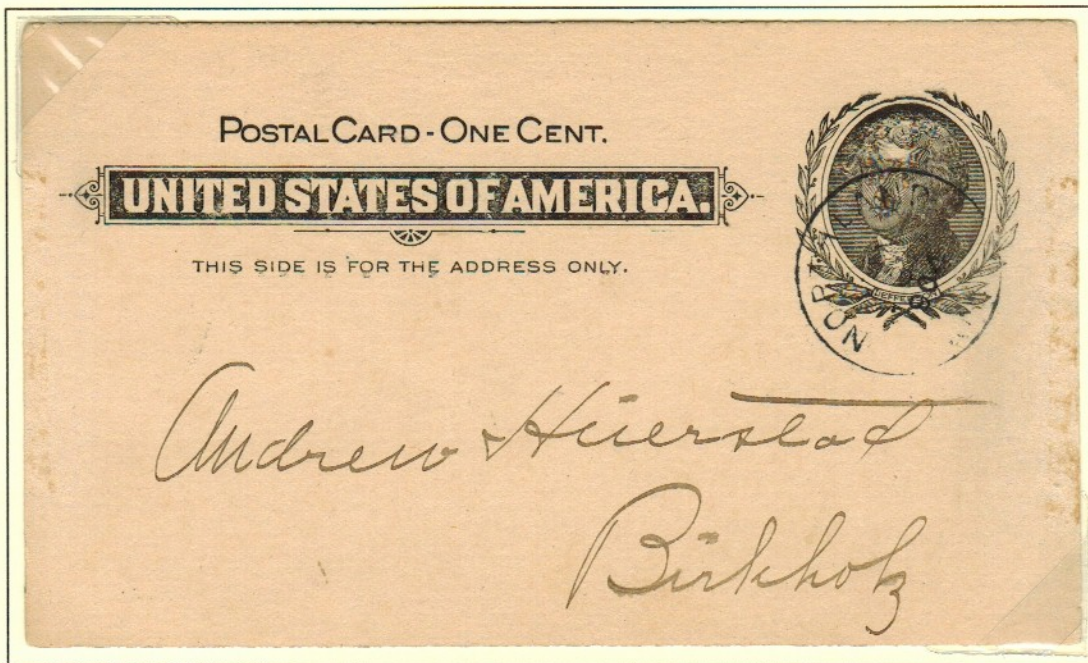 POSTAL CARD - ONE CENT.
UNITED STATES OF AMERICA.
THIS SIDE IS FOR THE ADDRESS ONLY.
Andrew Hüerstad
Birkholz